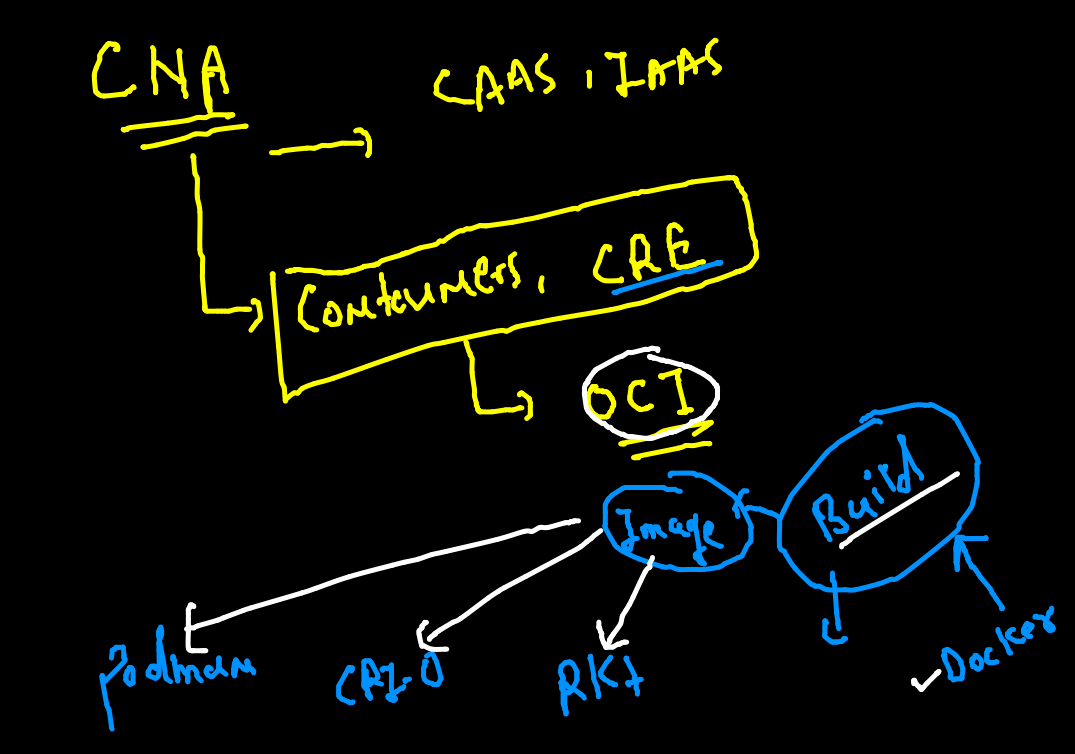 CNA
CAAS, IAAS
Containers, CRE
OCI
Image
Build
Podman
CRI-O
RKt
Docker